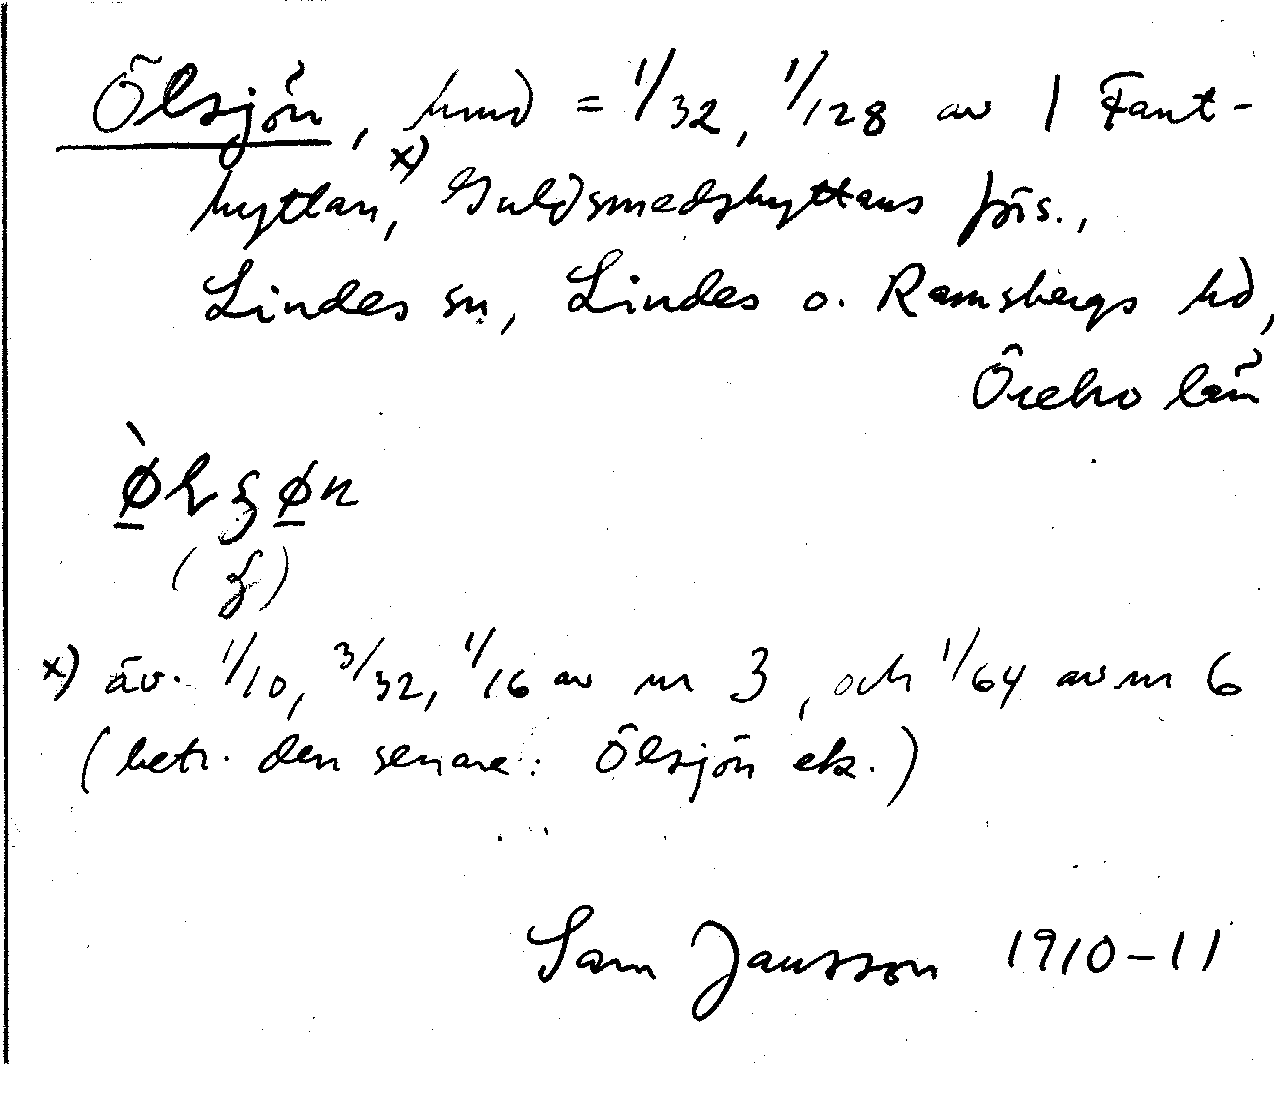 Ölsjön, hmd = 1/32, 1/128 av 1 Fant-
hyttan, x) Guldsmedshyttans förs.,
Lindes sn, Lindes o. Ramsbergs hd,
Örebro län
x) äv. 1/10, 3/32, 1/16 av nr 3, och 1/64 av nr 6
(betr. den senare: Ölsjön ek.)
Sam Jansson 1910-11